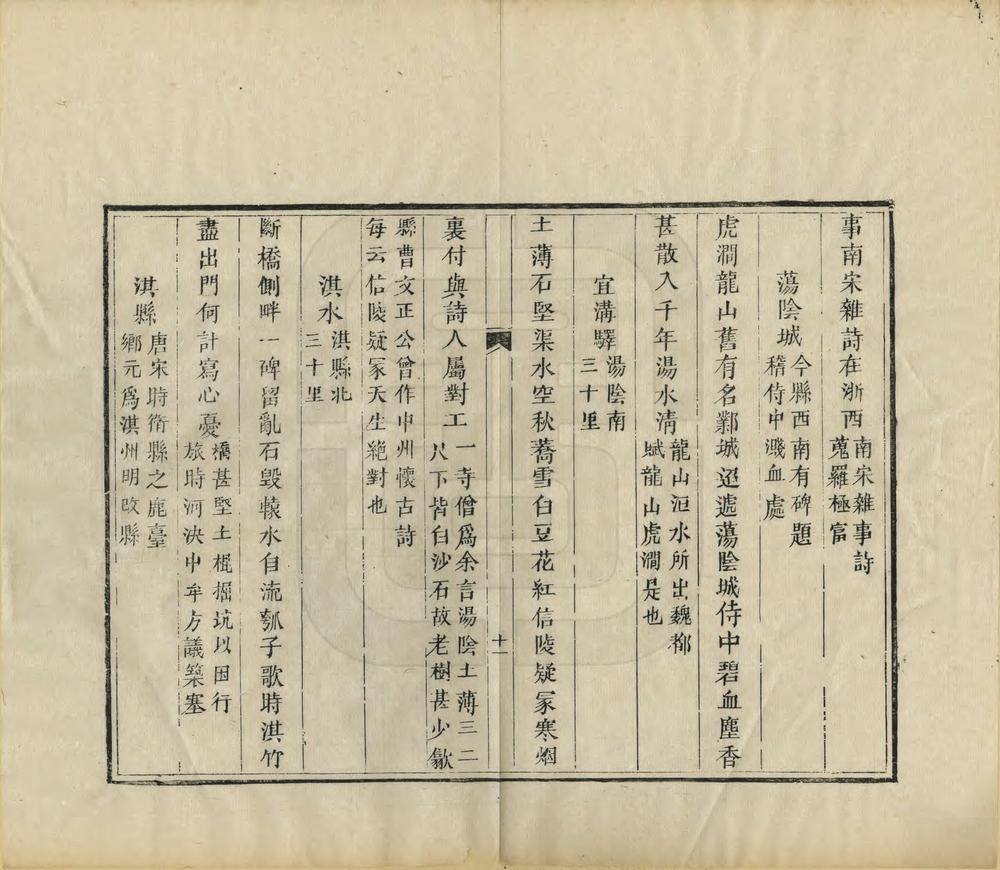 事南宋雜詩在浙西南宋雜事詩
蒐羅極富
蕩陰城今縣西南有碑題
稽侍中濺血處
虎澗龍山舊有名鄴城迢遞蕩陰城侍中碧血塵香
甚散入千年湯水淸龍山洹水所出魏都
賦龍山虎澗是也
宜溝驛湯陰南
三十里
土薄石堅渠水空秋蕎雪白豆花紅信陵疑冢寒烟
十一
裏付與詩人屬對工一寺僧爲余言湯陰土薄三二
尺下皆白沙石故老樹甚少歙
縣曹文正公曾作中州懷古詩
每云信陵疑冢天生絶對也
淇水淇縣北
三十里
斷橋側畔一碑留亂石毀轅水自流瓠子歌時淇竹
盡出門何計寫心憂橋甚堅土棍掘坑以困行
旅時河決中牟方議築塞
淇縣唐宋時衛縣之鹿臺
鄉元爲淇州明改縣